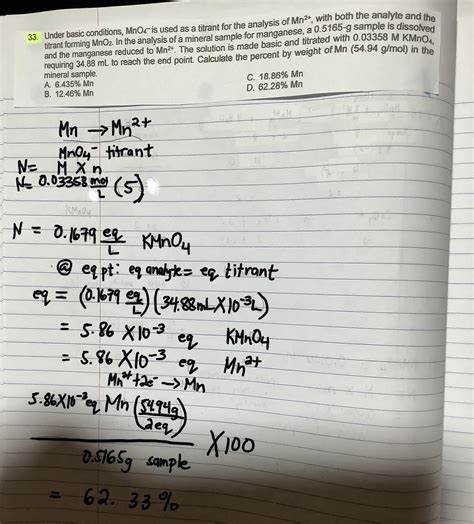 33. Under basic conditions, MnO₄⁻ is used as a titrant for the analysis of Mn²⁺, with both the analyte and the
titrant forming MnO₂. In the analysis of a mineral sample for manganese, a 0.5165-g sample is dissolved
and the manganese reduced to Mn²⁺. The solution is made basic and titrated with 0.03358 M KMnO₄,
requiring 34.88 mL to reach the end point. Calculate the percent by weight of Mn (54.94 g/mol) in the
mineral sample.
A. 6.435% Mn
C. 18.86% Mn
B. 12.46% Mn
D. 62.28% Mn
Mn → Mn²⁺
MnO₄⁻ titrant
N = M X n
N = 0.03358 mol/L (5)
KMnO₄
N = 0.1679 eq/L KMnO₄
@ eq pt: eq analyte = eq titrant
eq = (0.1679 eq/L)(34.88mL X10⁻³L)
= 5.86 X10⁻³ eq KMnO₄
= 5.86 X10⁻³ eq Mn²⁺
Mn²⁺+2e⁻ → Mn
5.86X10⁻³eq Mn (54.94g/2eq)
0.5165g sample
X100
= 62.33%